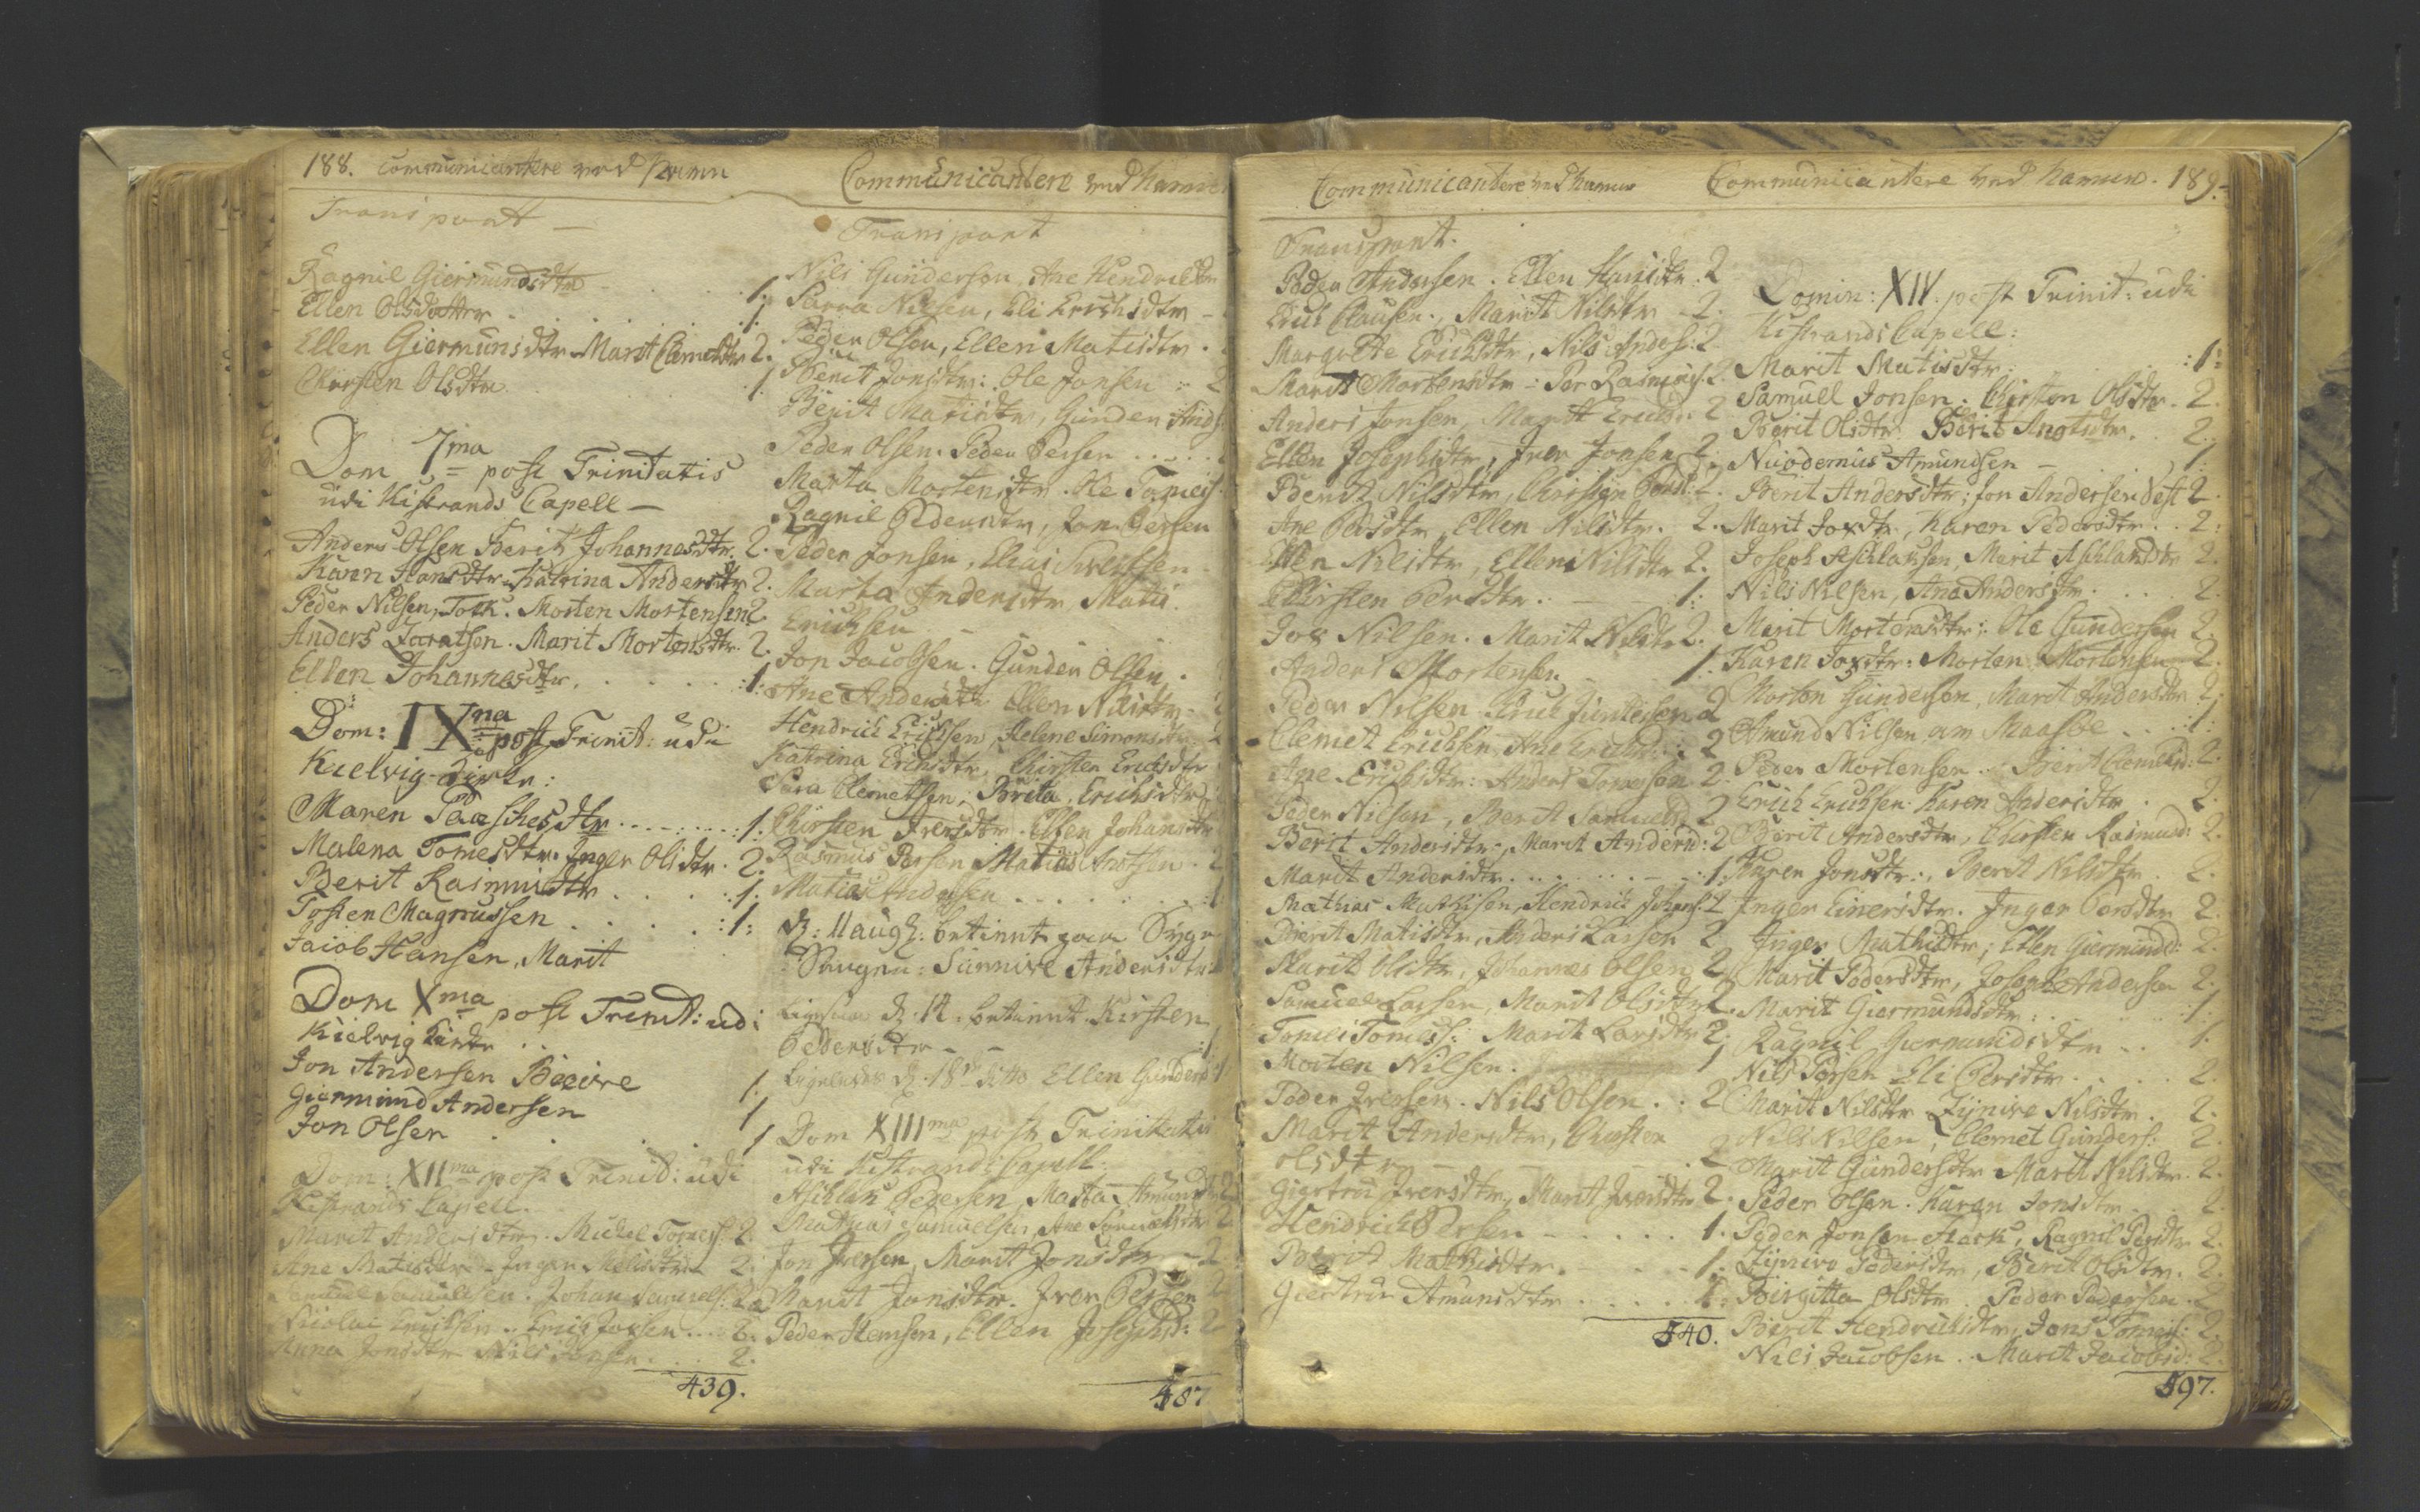 188. Communicantere ved Havnen
Transport
Ragnil Giermundsdtr 1.
Ellen Olsdatter 1.
Ellen Giermunsdtr Marit Clemetdtr 2.
Chirsten Olsdtr 1.
Dom 7ma post Trinitatis
udi Kistrands Capell
Anders Olsen Berit Johannesdtr. 2.
Karen Hansdtr. Katrina Andersdtr 2.
Peder Nilsen, Morten Mortensen 2.
Anders Marit Mortensdtr. 2.
Ellen Johannesdtr. 1:
Dom: IXna post Trinit: udi
Kielvig Kirke:
Maren Paaschesdtr 1:
Malena Tomesdtr. Inger Olsdtr. 2.
Berit Rasmusdtr 1:
Tosten Magnussen :1:
Jacob Hansen, Marit
Dom Xma post Trinit: udi
Kielvig Kirke
Jon Andersen 1.
Giermund Andersen 1
Jon Olsen 1
Dom: XIIma post Trinit: udi
Kistrands Capell.
Marit Andersdtr. Michel Tomess: 2.
Ane Matisdtr Inger Nilsdtr 2.
Johan Samuels: 2
Nicolai Erichsen. 2.
Anna Jonsdtr Nils Jonsen 2.
439.
Communicantere ved Havnen
Transport
Nils Gundersen, Ane Hendrichdtr
Nilsen, Eli Erichsdtr
Peder Olsen, Ellen Matisdtr.
Berit Jonsdtr: Ole Jonsen 2
Berit Matisdtr, Gunder Ands
Peder Olsen. Peder Persen
Marta Mortensdtr. Ole Tomess.
Ragnil Pedersdtr, Jon Persen
Peder Jonsen, Elias
Marta Andersdtr Matis
Erichsen
Jon Jacobsen. Gunder Olsen.
Ane Andersdtr Ellen Nilsdtr
Hendrich Erichsen, Helene Simonsdtr
Katrina Erichsdtr, Chirsten Erichsdtr
Clemetsen, Brita Erichsdtr
Chirsten Iversdtr. Ellen Johansdtr
Rasmus Persen Matias 2
Matias Andersen 1
D: 11 aug: betient paa Syge
Sengen: Sunnive Andersdtr
Ligesaa d. 14. betient Kirsten
Pedersdtr 1
Ligeledes d. 18de ditto Ellen Gundersd: 1
Dom XIIIma post Trinitatis
udi Kistrands Capell.
Aschlak Pedersen, Marta Amunds 2
Mathias Samuelsen, Ane Samuelsdtr 2
Jon Iversen, Marit Jonsdtr 2.
Marit Jonsdtr. Iver Persen 2
Peder Hemsen, Ellen Josephsd: 2
487
Communicantere ved Havnen
Transport.
Peder Andersen. Ellen Hansdtr. 2
Clausen., Marit Nilsdtr 2.
Margrete Erichsdtr, Nils Anders: 2
Marit Mortensdtr: Per Rasmuss. 2.
Anders Jonsen, Marit Erichsd: 2
Ellen Josephsdtr, Iver Jonsen 2
Berit Nilsdtr, Chirsten 2.
Ane Persdtr Ellen Nilsdtr. 2.
Ellen Nilsdtr, Ellen Nilsdtr 2.
Chirsten Persdtr. 1:
Nilsen. Marit Nilsdtr 2.
Anders Mortensen 1.
Peder Nilsen 2
Clemet Erichsen, Ane Erichsd: 2
Ane Erichsdtr: Anders Tomesen 2.
Peder Nilsen, Berit Samuelsd: 2
Berit Andersdtr., Marit Andersd: 2
Marit Andersdtr 1.
Mathias Mathisen, Hendrich Johans: 2
Berit Matisdtr, Anders Larsen 2
Marit Olsdtr, Johannes Olsen 2
Samuel Larsen, Marit Olsdtr 2.
Tomes Tomess: Marit Larsdtr 2.
Morten Nilsen. 1
Peder Iversen. Nils Olsen 2
Marit Andersdtr, Chirsten
Olsdtr 2
Giertru Iversdtr, Marit Iversdtr 2.
Hendrich Persen 1.
Berit Mathisdtr. 1.
Giertru Amunsdtr 1.
540.
Communicantere ved Havnen. 189.
Domin: XIV. post Trinit: udi
Kistrands Capell:
Marit Matisdtr: :1:
Samuel Jonsen. Chirsten Olsdtr 2.
Berit Olsdtr. Berit 2.
Nicodemus Amundsen 1:
Berit Andersdtr; Jon Andersen 2.
Marit, Karen Pedersdtr 2:
Joseph Aschlaksen, Marit Aschlaksdtr 2.
Nils Nilsen, Ana Andersdtr 2.
Marit Mortensdtr; Ole Gundersen 2.
Karen: Morten Mortensen 2.
Morten Gundersen, Marit Andersdtr 2.
Amund Nilsen am Maasøe 1:
Peder Mortensen. Berit Clemetsd: 2.
Erich Erichsen Karen Andersdtr 2.
Berit Andersdtr, Chirsten Rasmusd: 2.
Karen Jonsdtr., Berit Nilsdtr 2.
Inger Einersdtr. Inger Persdtr 2.
Inger Mathisdtr; Ellen Giermund: 2.
Marit Pedersdtr, Joseph Andersen 2.
Marit Giermundsdtr: :1:
Ragnil Giermundsdtr 1.
Nils Persen Eli Persdtr 2.
Marit Nilsdtr Zynive Nilsdtr 2.
Nils Nilsen, Clemet Gunders: 2.
Marit Gundersdtr Marit Nilsdtr. 2.
Peder Olsen. Karen Jonsdtr 2.
Peder Jonsen, Ragnil Persdtr 2.
Zynive Pedersdtr, Berit Olsdtr. 2.
Birgitta Olsdtr. Peder Pedersen 2
Berit Hendrichsdtr, Jons Tomess: 2.
Nils Jacobsen. Marit Jacobsd: 2.
597.